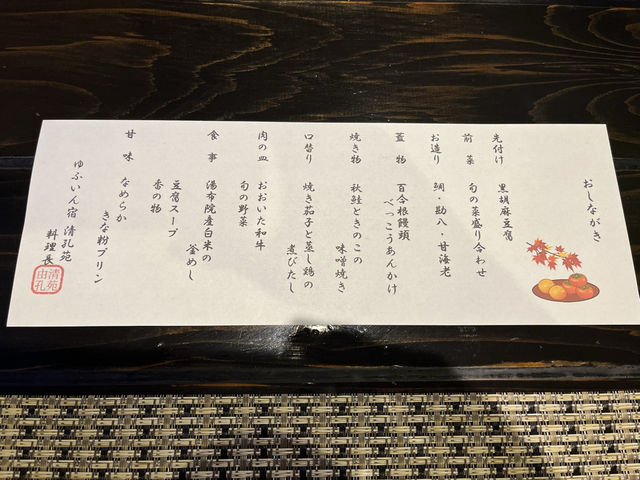 おしながき
先付け 黒胡麻豆腐
前菜 旬の菜盛り合わせ
お造り 鯛・勘八・甘海老
蓋物 百合根饅頭
べっこうあんかけ
焼き物 秋鮭ときのこの
味噌焼き
口替り 焼き茄子と蒸し鶏の
煮びたし
肉の皿 おおいた和牛
旬の野菜
食事 湯布院産白米の
釜めし
豆腐スープ
香の物
甘味 なめらか
きな粉プリン
ゆふいん宿 清孔苑
料理長
清苑
由孔